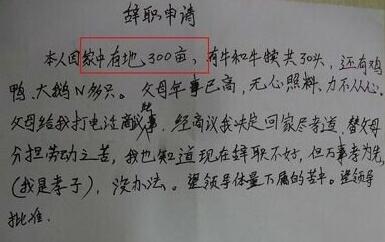 辞职申请
本人因家中有地300亩，有牛和牛犊共30头，还有鸡
鸭、大鹅N多只。父母年事已高，无心照料，力不从心。
父母给我打电话商议事，经商议我决定回家尽孝道，替父母
分担劳动之苦，我也知道现在辞职不好，但万事孝为先，
(我是孝子)，没办法。望领导体量下属的苦中。望领导
批准.